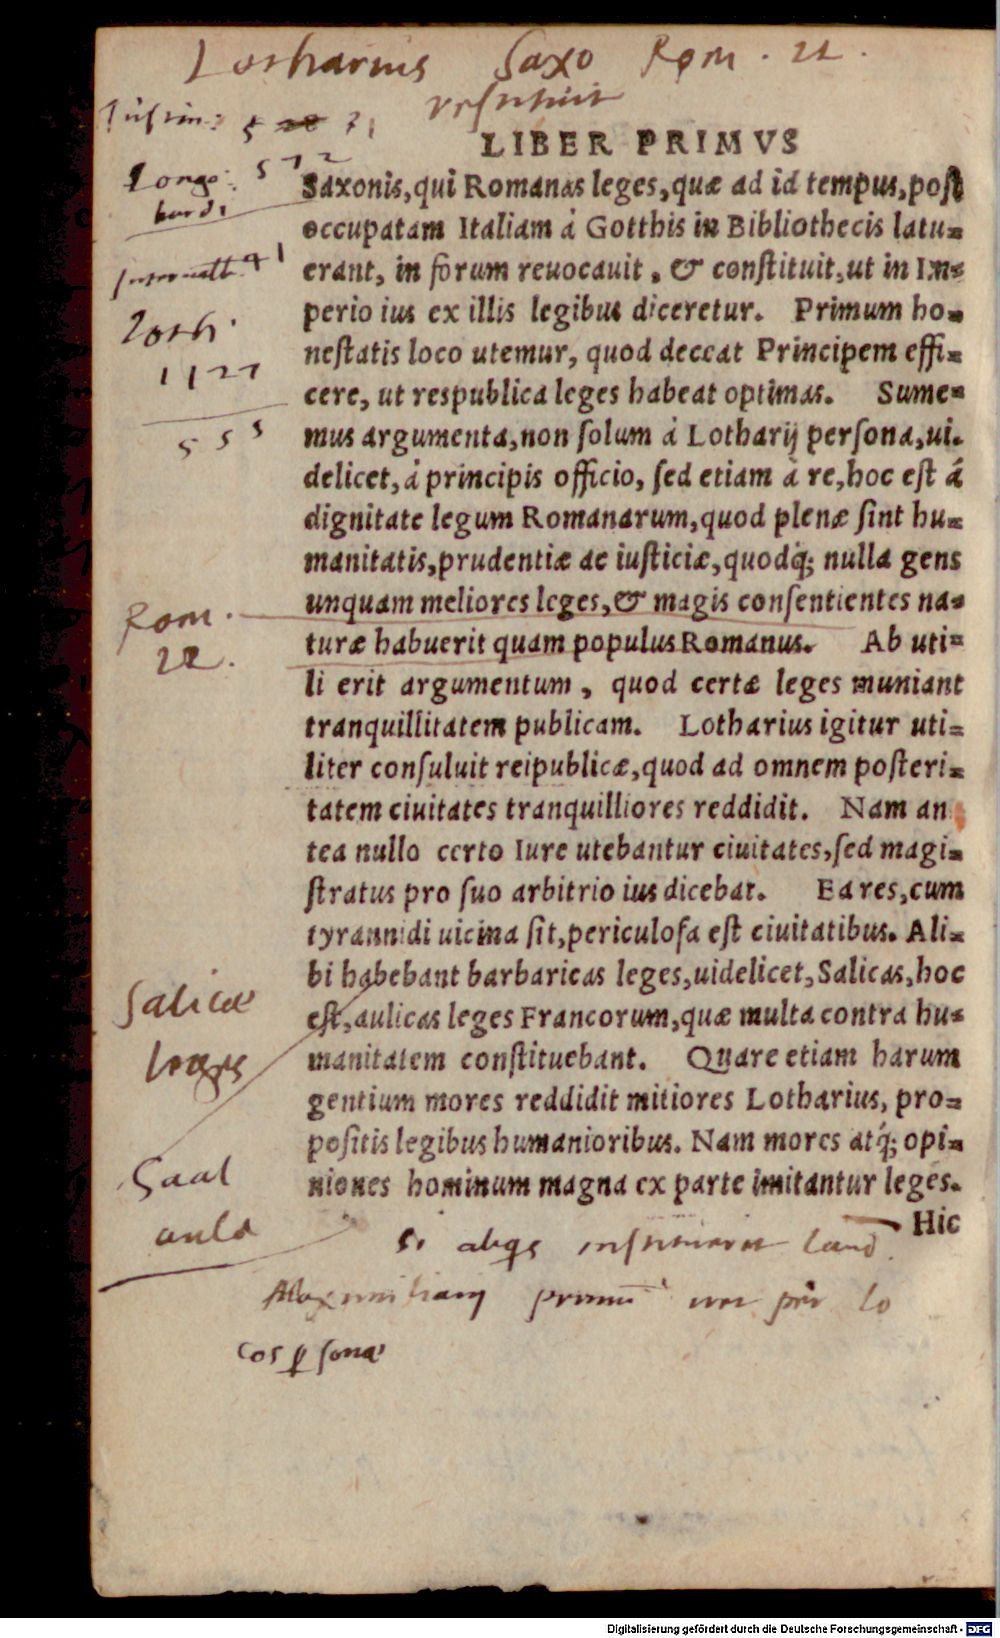 Lotharius Saxo Rom. 22.
restituit
Justin: 5 71
LIBER PRIMVS
Longo: 572
bardi
Saxonis, qui Romanas leges, quæ ad id tempus, post
occupatam Italiam á Gotthis in Bibliothecis latu-
erant, in forum reuocauit, & constituit, ut in Im-
perio ius ex illis legibus diceretur. Primum ho-
nestatis loco utemur, quod deceat Principem effi-
cere, ut respublica leges habeat optimas. Sume-
mus argumenta, non solum á Lotharij persona, ui-
delicet, á principis officio, sed etiam á re, hoc est á
dignitate legum Romanarum, quod plenæ sint hu-
manitatis, prudentiæ ac iusticiæ, quodq́; nulla gens
unquam meliores leges, & magis consentientes na-
turæ habuerit quam populus Romanus. Ab uti-
li erit argumentum, quod certæ leges muniant
tranquillitatem publicam. Lotharius igitur uti-
liter consuluit reipublicæ, quod ad omnem posteri-
tatem ciuitates tranquilliores reddidit. Nam an
tea nullo certo Iure utebantur ciuitates, sed magi-
stratus pro suo arbitrio ius dicebat. Ea res, cum
tyrannidi uicina sit, periculosa est ciuitatibus. Ali-
bi habebant barbaricas leges, uidelicet, Salicas, hoc
est, aulicas leges Francorum, quæ multa contra hu-
manitatem constituebant. Quare etiam harum
gentium mores reddidit mitiores Lotharius, pro-
positis legibus humanioribus. Nam mores atq́; opi-
niones hominum magna ex parte imitantur leges.
Hic
Loth.
1127
555
Rom.
22.
Salicae
leges
Saal
aula
si
Maximiliani
lo
cos
Digitalisierung gefördert durch die Deutsche Forschungsgemeinschaft - DFG